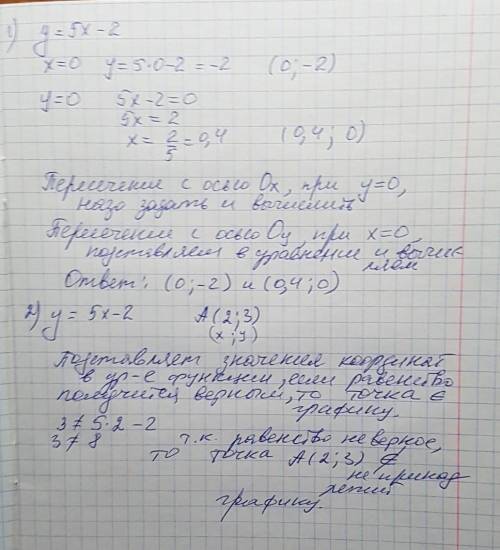 1) y = 5x - 2
x = 0 y = 5·0 - 2 = -2 (0; -2)
y = 0 5x - 2 = 0
5x = 2
x = 2/5 = 0,4 (0,4; 0)
Пересечение с осью Ox, при y=0,
надо задать и вычислить
Пересечение с осью Oy при x=0,
подставляем в уравнение и вычис
ляем
Ответ: (0; -2) и (0,4; 0)
2) y = 5x - 2 A(2; 3)
(x; y)
Подставляем значения координат
в ур-е функции, если равенство
получится верным, то точка ∈
графику.
3 ≠ 5·2 - 2
3 ≠ 8 т.к. равенство неверное,
то точка A(2; 3) ∉
не принад
лежит
графику.